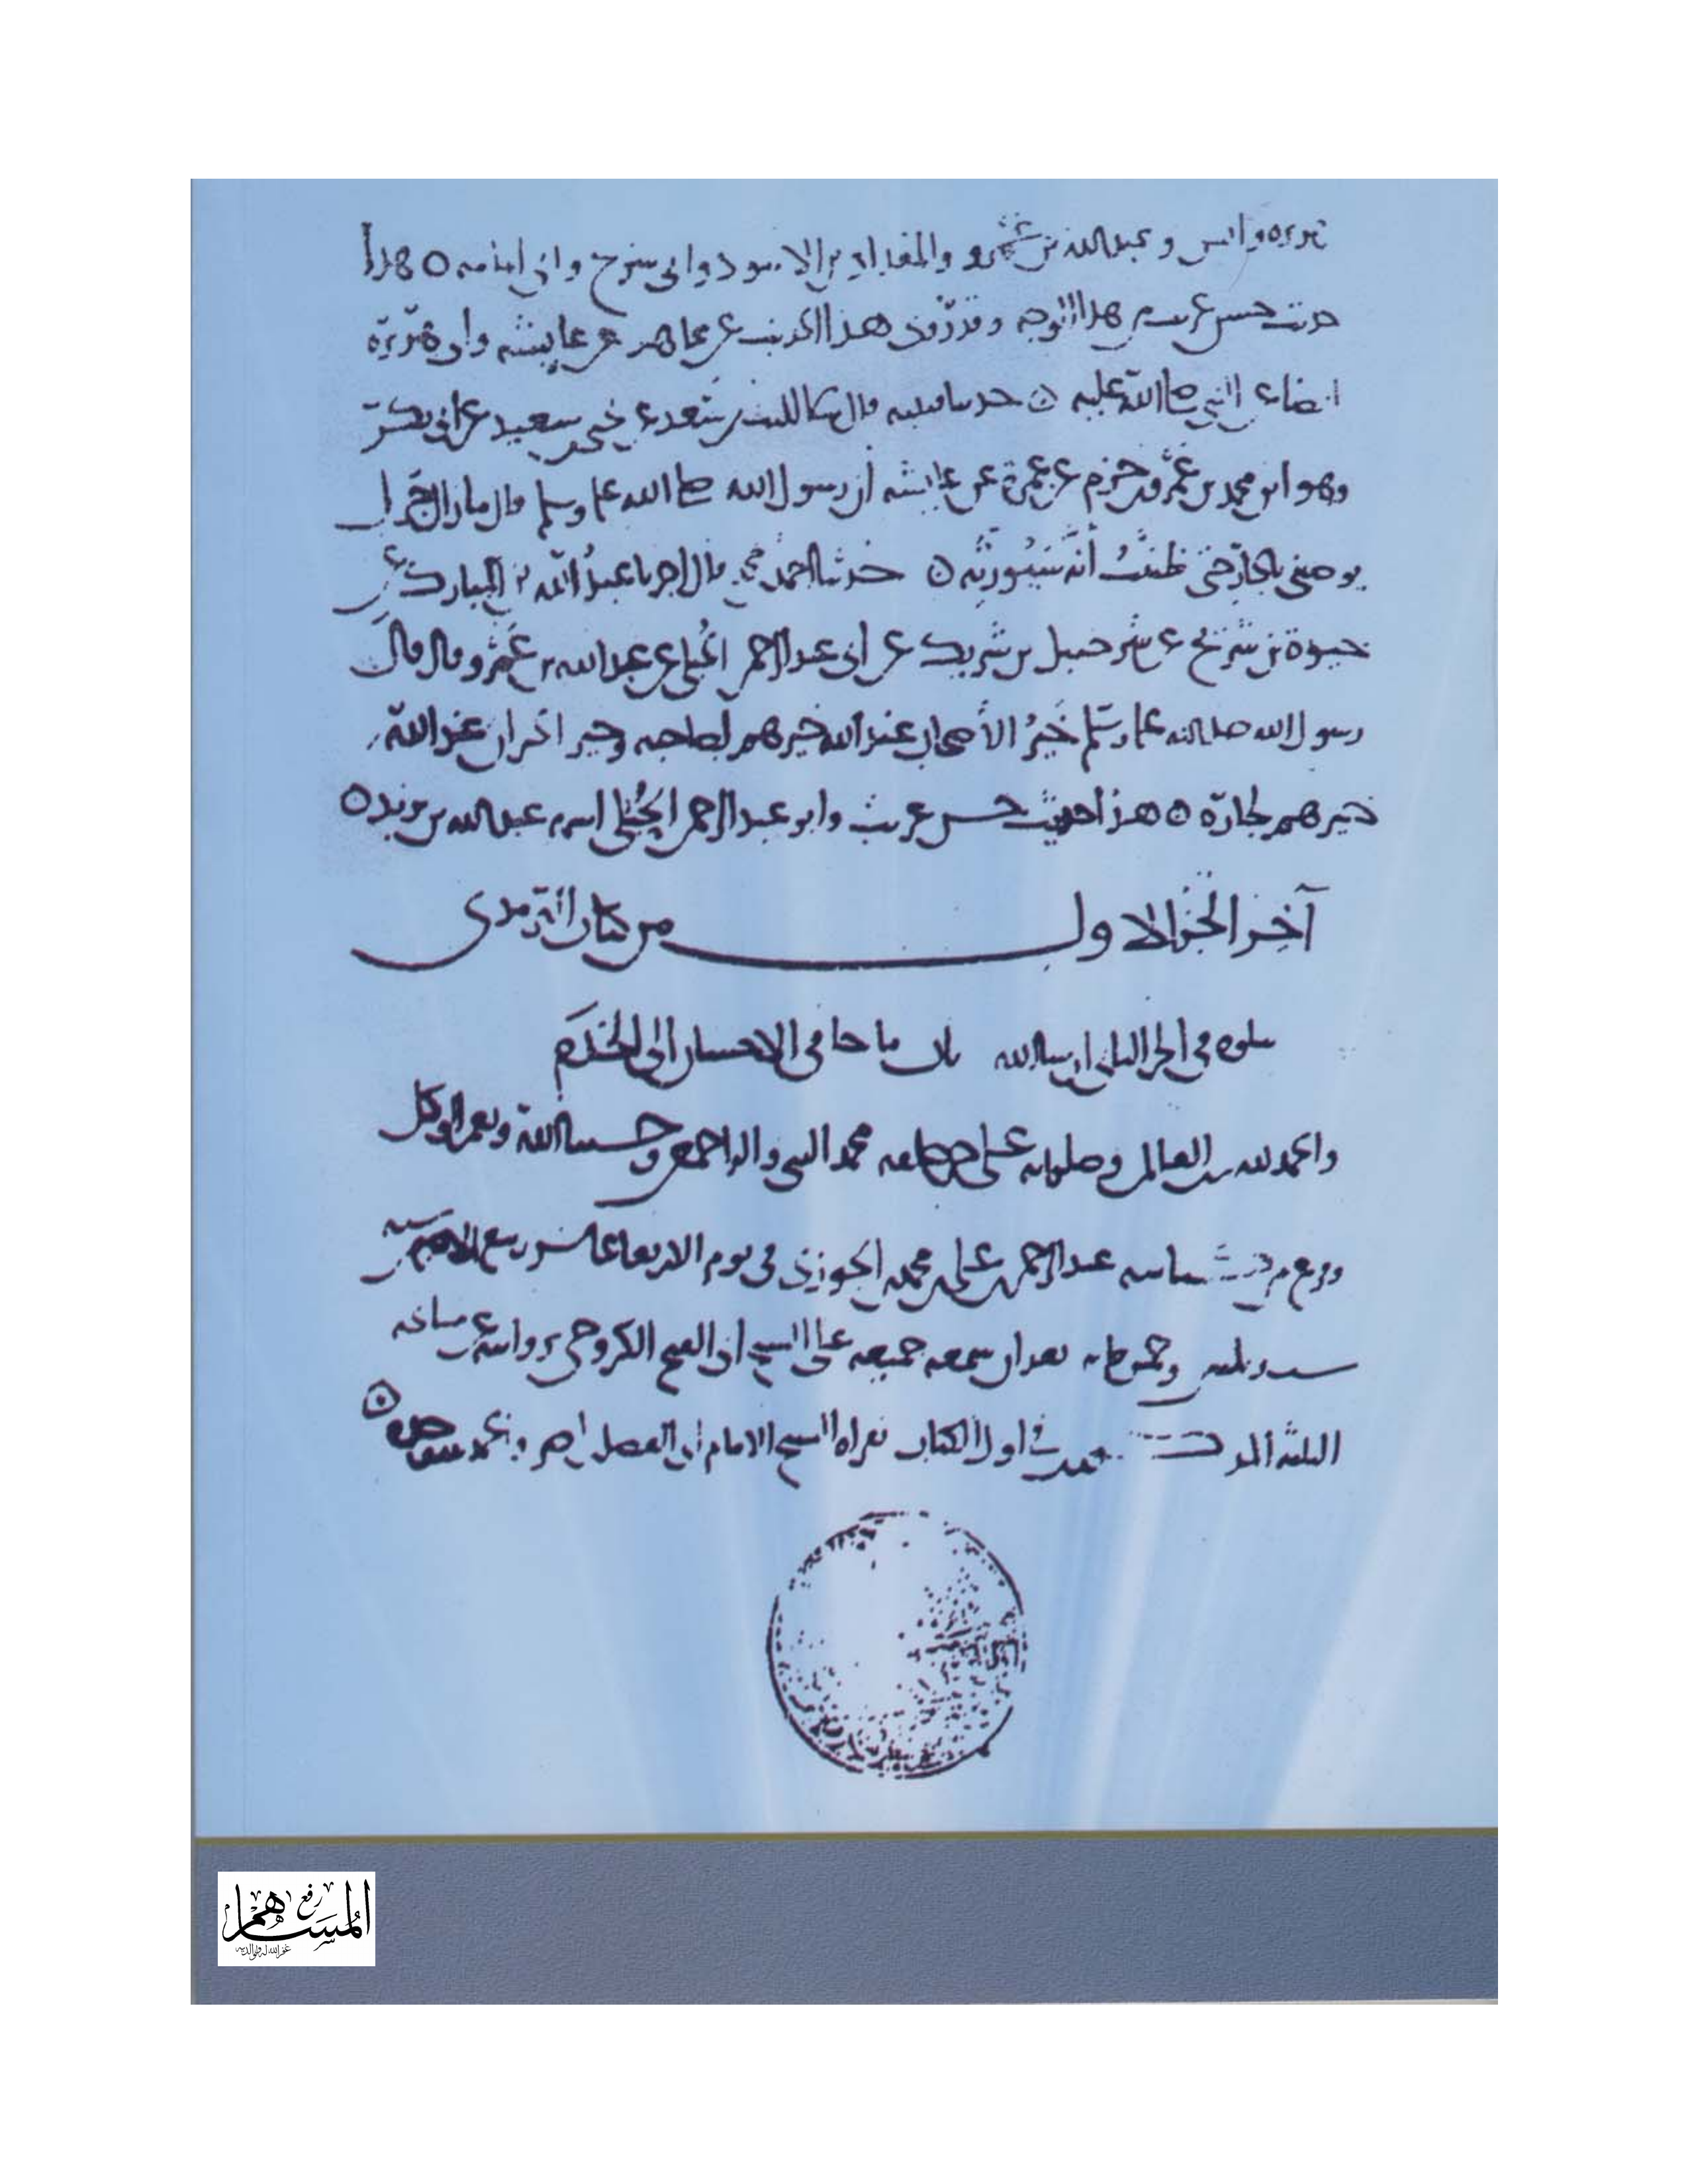 هريره وانس وعبد الله بن عمرو والمقداد بن الاسود وابي شريح وابي امامه ٥ هذا
حديث حسن غريب من هذا الوجه وقد روي هذا الحديث عن مجاهد عن عايشه وابي هريرة
ايضا عن النبي صلى الله عليه ٥ حدثنا قتيبه قال حدثنا الليث بن سعد عن يحيى بن سعيد عن ابي بكر
وهو ابن محمد بن عمرو بن حزم عن عمرة عن عايشه أن رسول الله صلى الله عليه وسلم قال ما زال جبريل
يوصيني بالجار حتى ظننت أنه سيورثه ٥ حدثنا احمد بن محمد قال اخبرنا عبد الله بن المبارك عن
حيوة بن شريح عن شرحبيل بن شريك عن ابي عبد الرحمن الحبلي عن عبد الله بن عمرو قال قال
رسول الله صلى الله عليه وسلم خير الأصحاب عند الله خيرهم لصاحبه وخير الجيران عند الله
خيرهم لجاره ٥ هذا حديث حسن غريب وابو عبد الرحمن الحبلي اسمه عبد الله بن يزيد ٥
آخر الجزء الاول من كتاب الترمذي
يتلوه في الجزء الثاني ان شا الله باب ما جا في الاحسان الى الخدم
والحمد لله رب العالمين وصلواته على محمد النبي واله اجمعين وحسبنا الله ونعم الوكيل
وفرغ من عبد الرحمن بن علي بن محمد بن الجوزي في يوم الاربعا عاشر ربيع
وخمس مايه بعد ان سمعه جميعه على الشيخ ابي الفتح الكروخي بروايته عن مشايخه
الثلثه اول الكتاب بقراه الشيخ الامام ابي الفضل بن ناصر
المساهم
رفع
غفر الله له ولوالديه